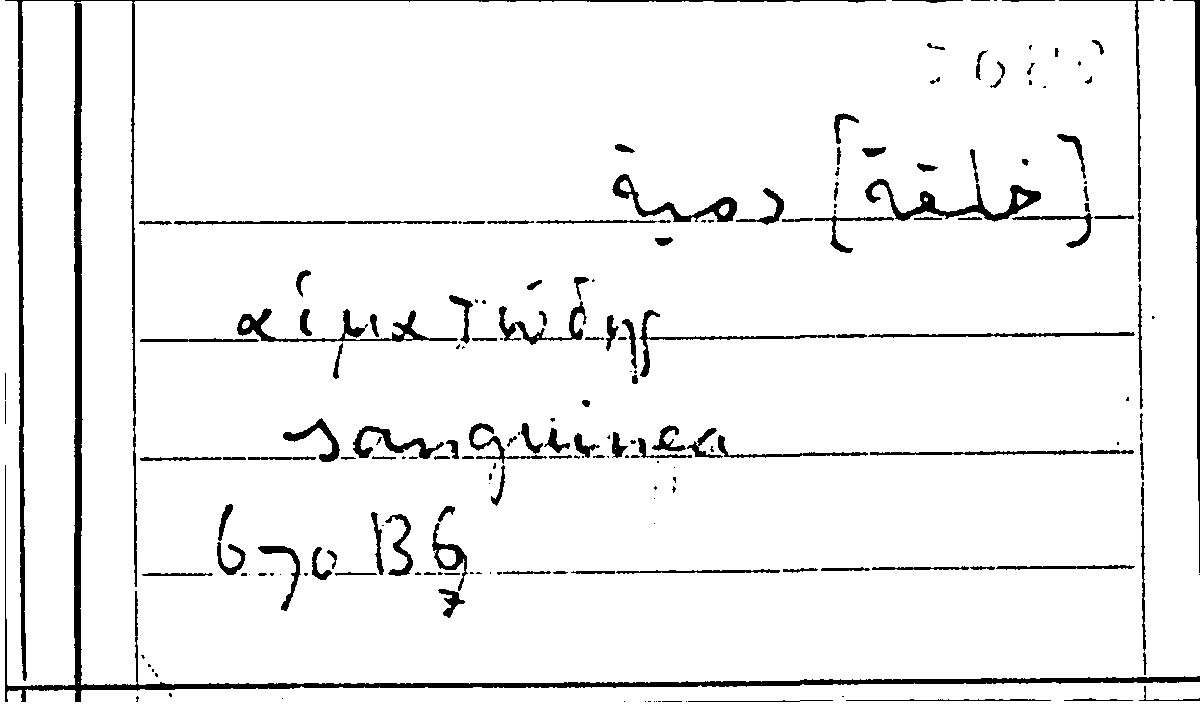 [خلقة] دمية
αἱματώδης
sanguinea
670 B 6
7